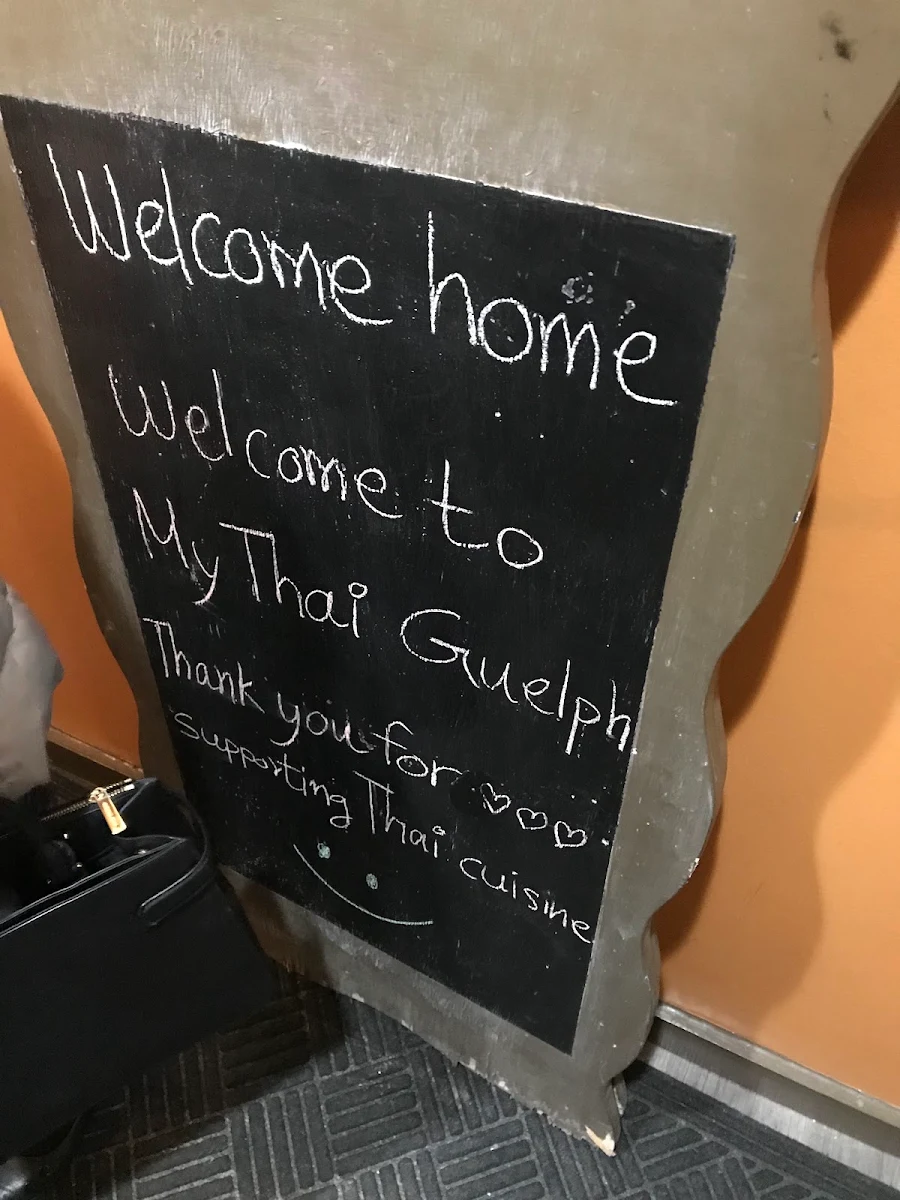 Welcome home
Welcome to
My Thai Guelph
Thank you for ♡♡♡
Supporting Thai cuisine